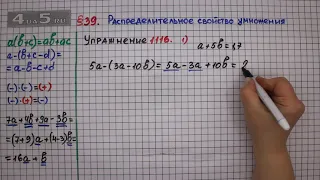 4 на 5.ru
§39. Распределительное свойство умножения
Упражнение 1116. 1)
a(b+c)=ab+ac
a-(b+c-d)=
=a-b-c+d
(-)·(-)=(+)
(-)·(+)=(-)
7a+4b+9a-3b=
=(7+9)a+(4-3)b=
=16a+b
a+5b=17
5a-(3a-10b)=5a-3a+10b=2